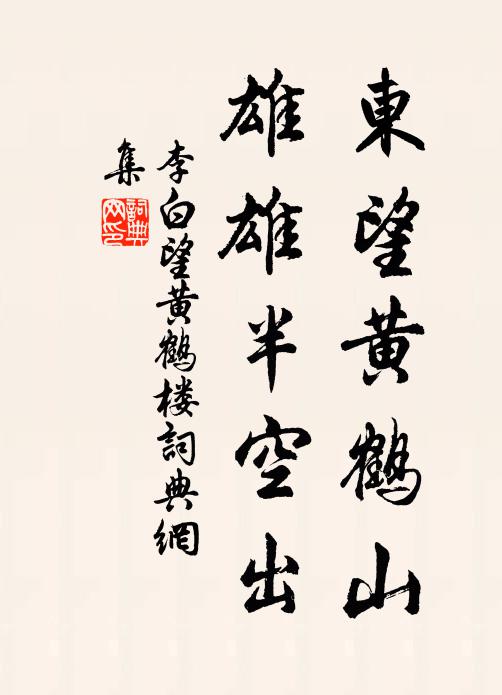 東望黃鶴山
雄雄半空出
李白望黃鶴楼詞典網
集
詞典
网印